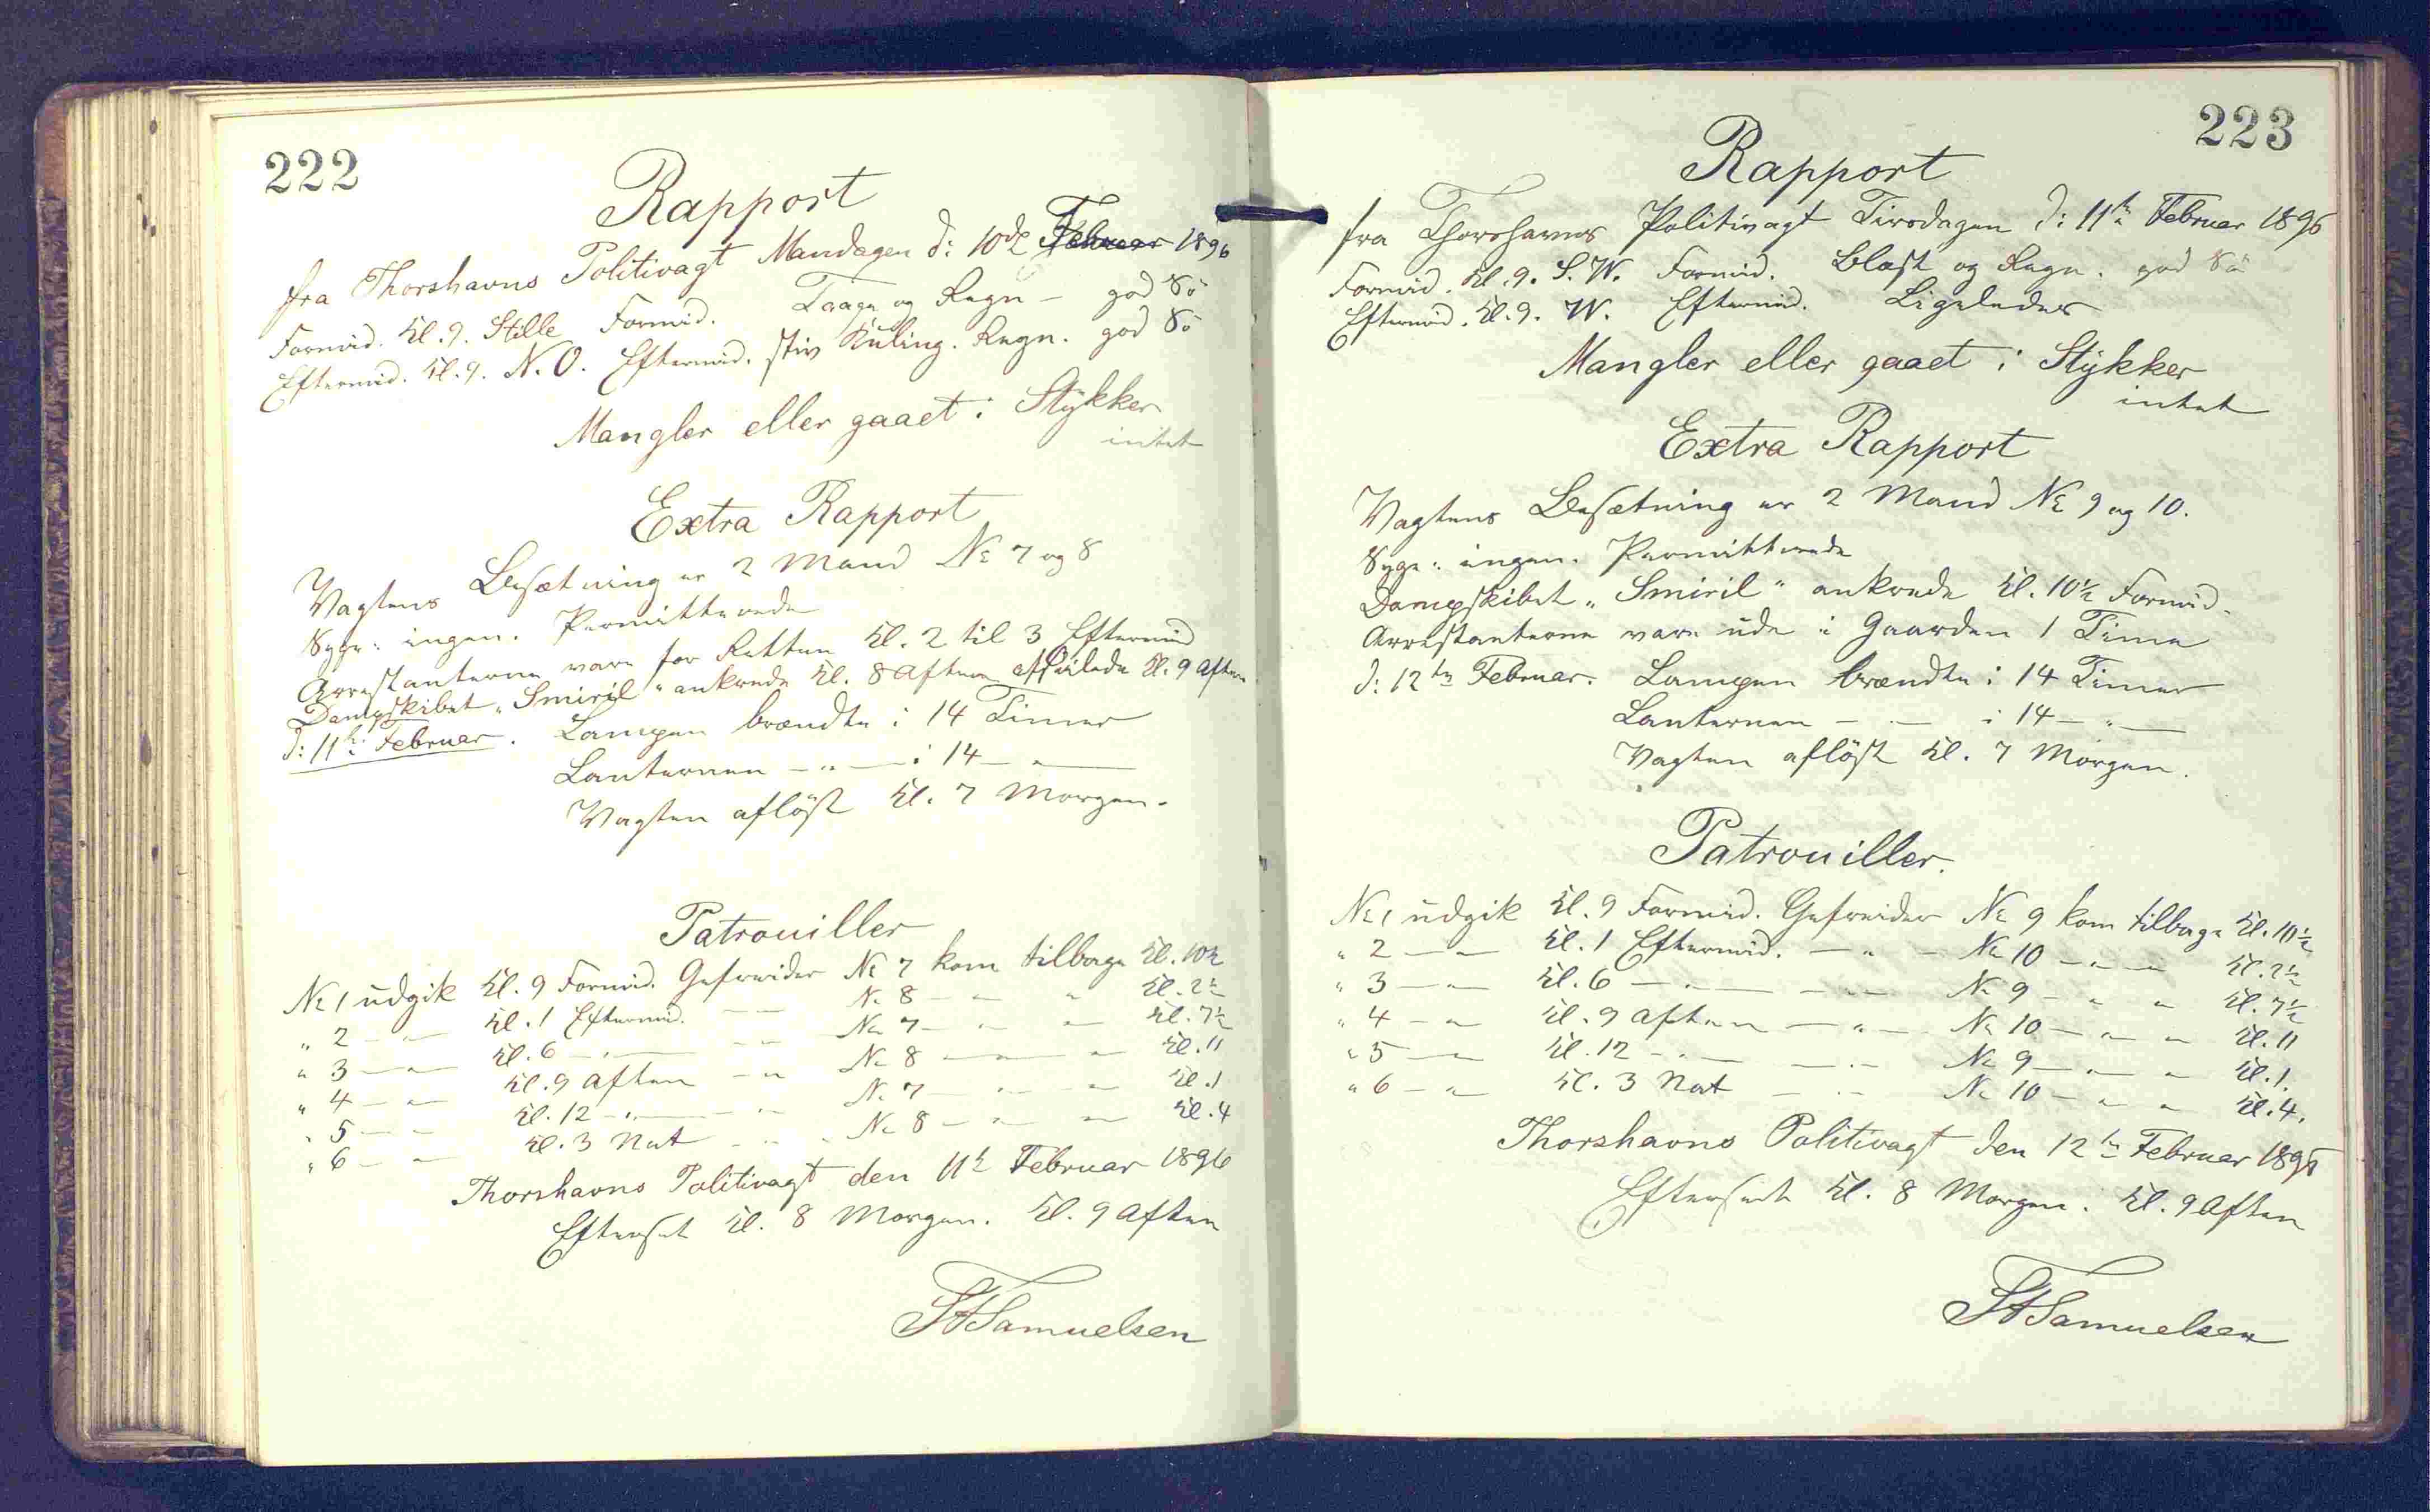 222
Rapport
fra Thorshavns Politivagt Mandagen d: 10de Februar 1896
Formid. Kl. 9. Stille Formid. Taage og Regn — god Sö
Eftermid. Kl. 9. N. O. Eftermid. stiv Kuling. Regn. god Sö
Mangler eller gaaet i Stykker
intet
Extra Rapport
Vagtens Besætning er 2 Mand No 7 og 8
Syge: ingen. Permitterede
Arrestanterne vare for Retten Kl. 2 til 3 Eftermid
Dampskibet „Smiril“ ankrede Kl. 8 Aften afseilede Kl. 9 Aften
d: 11te Februar. Lampen brændte i 14 Timer
Lanternen — „ — i 14 — „ —
Vagten aflöst Kl. 7 Morgen.
Patrouiller
No 1 udgik Kl. 9 Formid. Gefreider No 7 kom tilbage Kl. 10½
„ 2 — „ — Kl. 1 Eftermid. — „ — No 8 — „ — „ Kl. 2½
„ 3 — „ — Kl. 6 — „ — — „ — No 7 — „ — „ Kl. 7½
„ 4 — „ — Kl. 9 Aften — „ — No 8 — „ — „ Kl. 11
„ 5 — „ — Kl. 12 — „ — — „ — No 7 — „ — „ Kl. 1
„ 6 — „ — Kl. 3 Nat — „ — No 8 — „ — „ Kl. 4
Thorshavns Politivagt den 11te Februar 1896
Efterset Kl. 8 Morgen. Kl. 9 Aften
Samuelsen
223
Rapport
fra Thorshavns Politivagt Tirsdagen d: 11te Februar 1896
Formid. Kl. 9. S. W. Formid. Blæst og Regn. god Sö
Eftermid. Kl. 9. W. Eftermid. Ligeledes
Mangler eller gaaet i Stykker
intet
Extra Rapport
Vagtens Besætning er 2 Mand No 9 og 10.
Syge: ingen. Permitterede
Dampskibet „Smiril“ ankrede Kl. 10½ Formid.
Arrestanterne vare ude i Gaarden 1 Time
d: 12te Februar. Lampen brændte i 14 Timer
Lanternen — „ — i 14 — „ —
Vagten aflöst Kl. 7 Morgen.
Patrouiller.
No 1 udgik Kl. 9 Formid. Gefreider No 9 kom tilbage Kl. 10½
„ 2 — „ — Kl. 1 Eftermid. — „ — No 10 — „ — „ Kl. 2½
„ 3 — „ — Kl. 6 — „ — — „ — No 9 — „ — „ Kl. 7½
„ 4 — „ — Kl. 9 Aften — „ — No 10 — „ — „ Kl. 11
„ 5 — „ — Kl. 12 — „ — — „ — No 9 — „ — „ Kl. 1.
„ 6 — „ — Kl. 3 Nat — „ — No 10 — „ — „ Kl. 4.
Thorshavns Politivagt den 12te Februar 1896
Efterset Kl. 8 Morgen. Kl. 9 Aften
Samuelsen